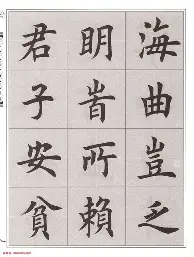 海曲豈乏
明旹所賴
君子安貧